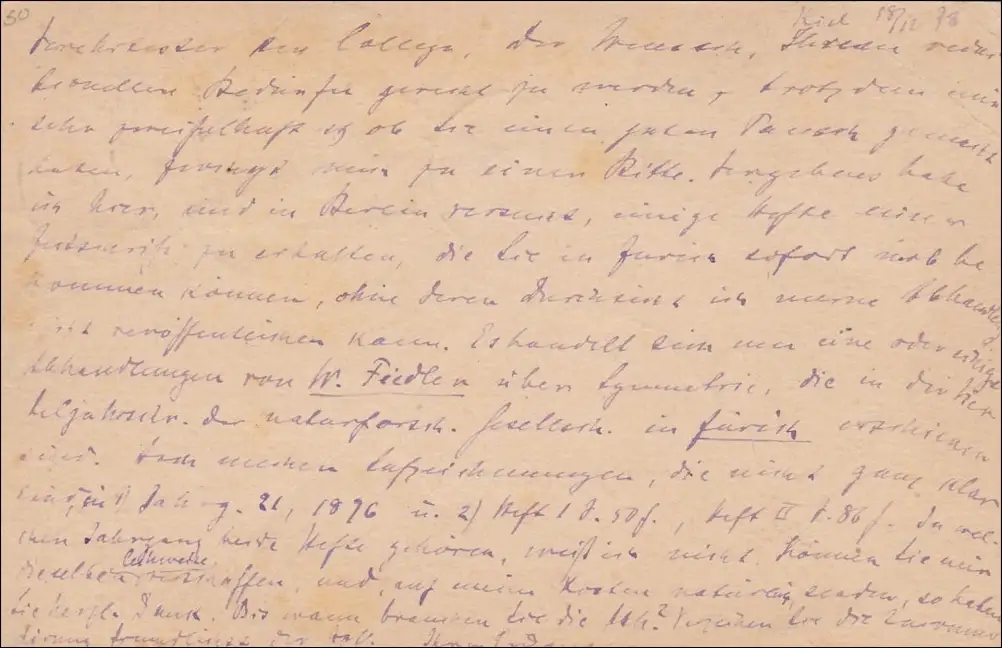 50
Kiel 18/12 78
Verehrtester Herr College, Der Wunsch, Ihrem
Bedürfn gerecht zu werden, trotzdem mir
sehr zweifelhaft ist ob Sie einen guten Tausch gemacht
haben, zwingt mich zu einer Bitte. Vergebens habe
ich hier, und in Berlin versucht, einige Hefte einer
Zeitschrift zu erhalten, die Sie in Zürich sofort be
kommen können, ohne deren Durchsicht ich meine Abhandlg
nicht veröffentlichen kann. Es handelt sich um eine oder einige
Abhandlungen von W. Fiedler über Symmetrie, die in der Vier
teljahrschr. der naturforsch. Gesellsch. in Zürich erschienen
sind. Nach meinen Aufzeichnungen, die nicht ganz klar
sind, in 1) Jahrg. 21, 1876 u. 2) Heft I S. 50 f., Heft II S. 86 f. In wel-
chen Jahrgang beide Hefte gehören, weiß ich nicht. Können Sie mir
dieselben leihweise verschaffen, und, auf meine Kosten natürlich, senden, so haben
Sie herzl. Dank. Bis wann brauchen Sie die Abh.? Verzeihen Sie die